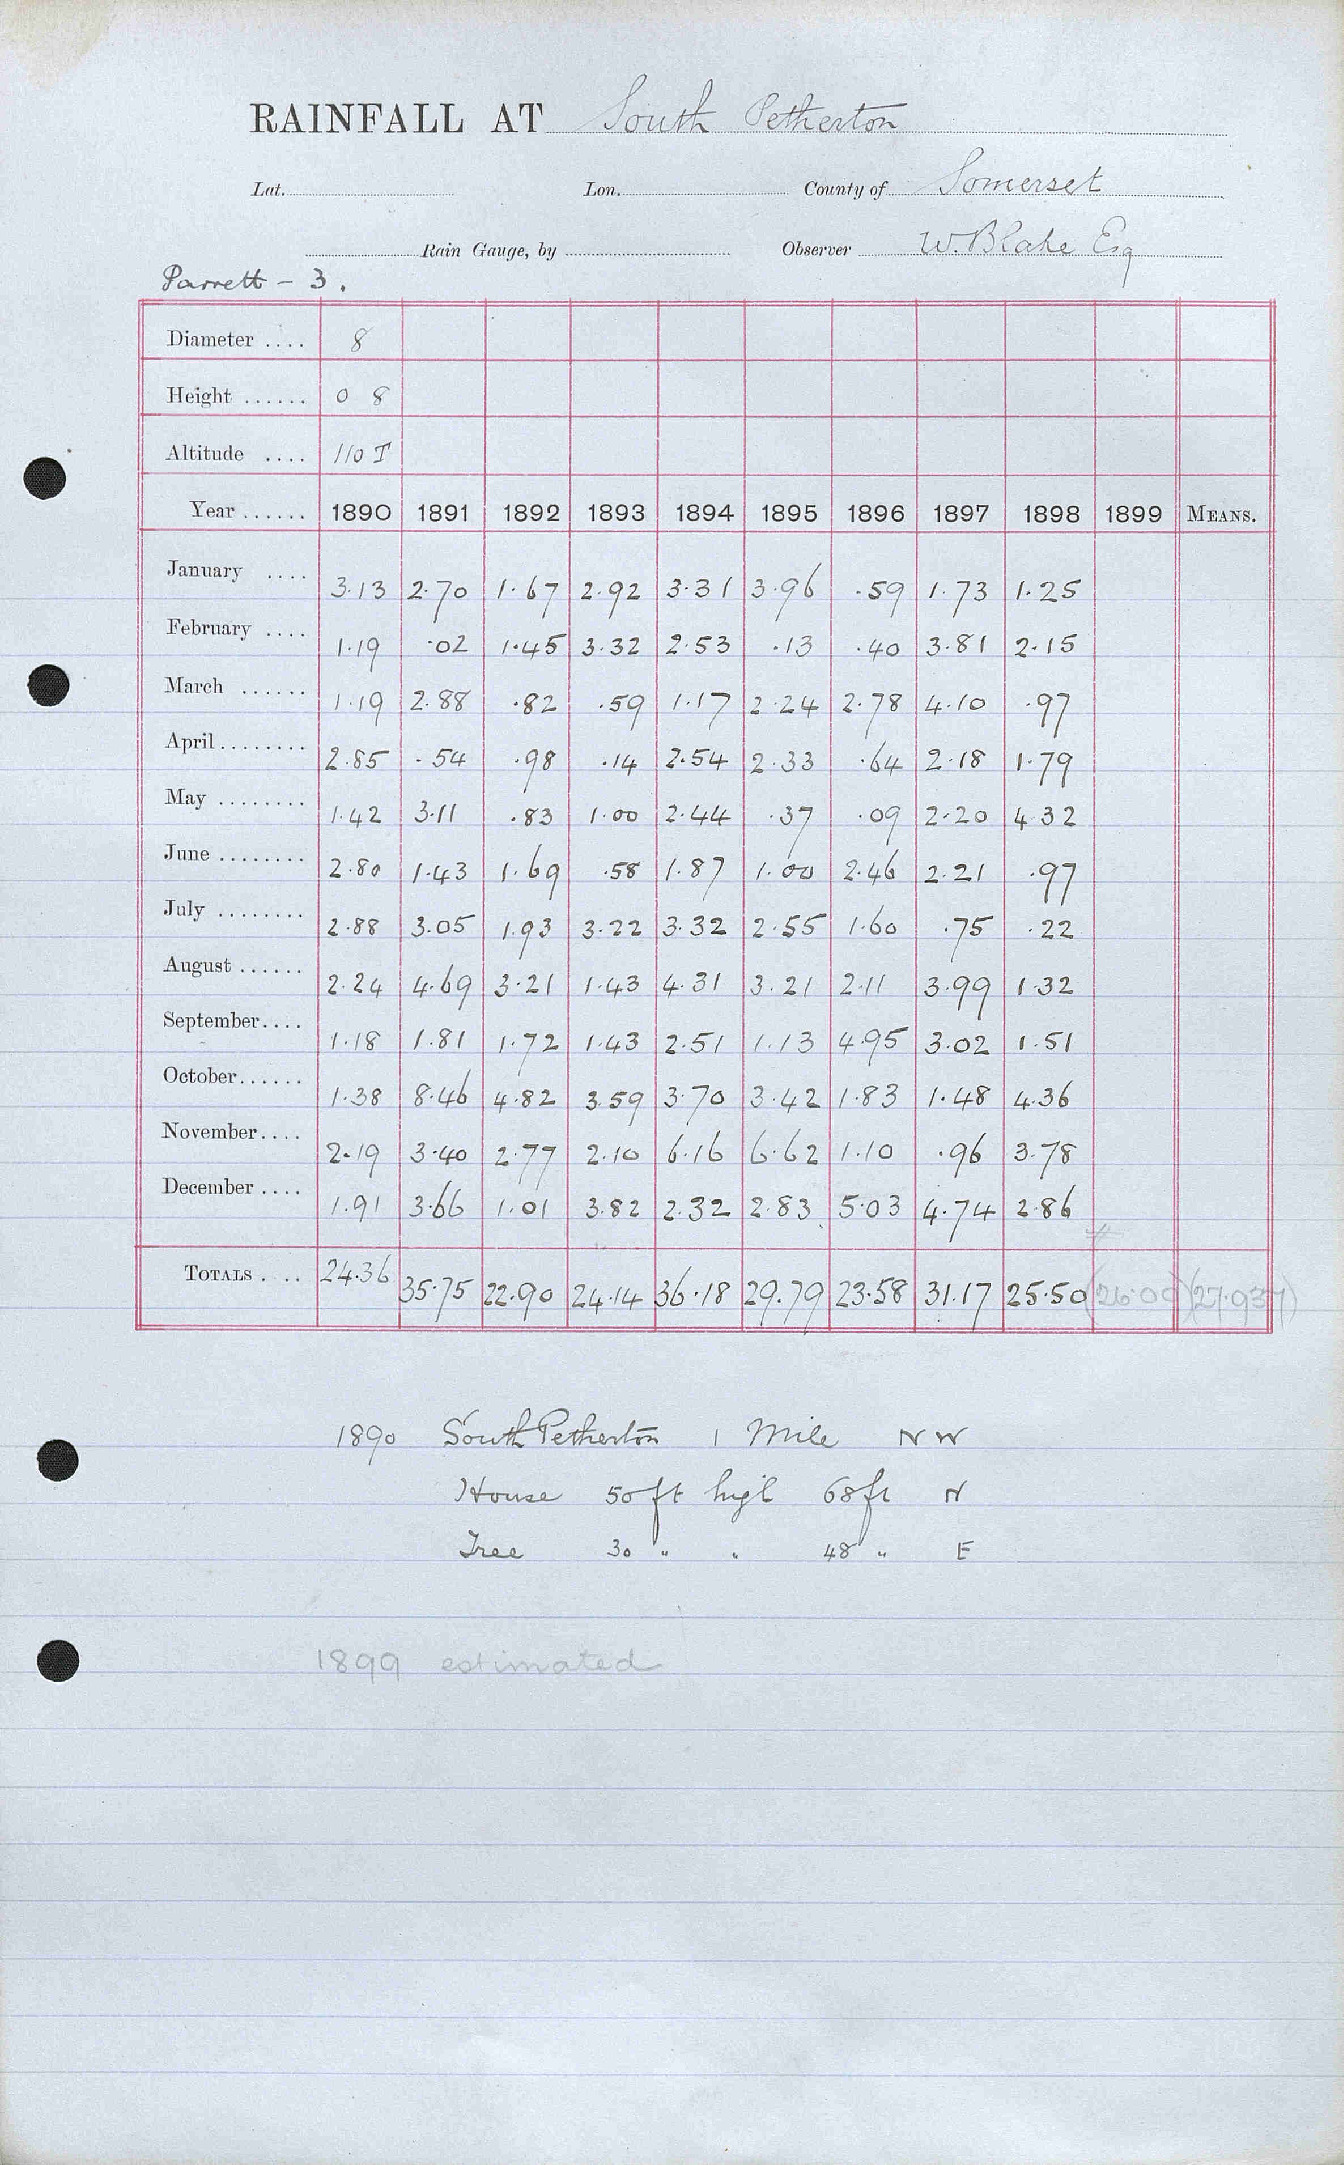 RAINFALL AT South Petherton
Lat. Lon. County of Somerset
Rain Gauge, by Observer W. Blake Esq
Parrett - 3.
Diameter .... 8
Height ...... 0 8
Altitude .... 110 T
Year ...... 1890 1891 1892 1893 1894 1895 1896 1897 1898 1899 MEANS.
January .... 3.13 2.70 1.67 2.92 3.31 3.96 .59 1.73 1.25
February .... 1.19 .02 1.45 3.32 2.53 .13 .40 3.81 2.15
March ...... 1.19 2.88 .82 .59 1.17 2.24 2.78 4.10 .97
April ........ 2.85 .54 .98 .14 2.54 2.33 .64 2.18 1.79
May ........ 1.42 3.11 .83 1.00 2.44 .37 .09 2.20 4.32
June ........ 2.80 1.43 1.69 .58 1.87 1.00 2.46 2.21 .97
July ........ 2.88 3.05 1.93 3.22 3.32 2.55 1.60 .75 .22
August ...... 2.24 4.69 3.21 1.43 4.31 3.21 2.11 3.99 1.32
September.... 1.18 1.81 1.72 1.43 2.51 1.13 4.95 3.02 1.51
October...... 1.38 8.46 4.82 3.59 3.70 3.42 1.83 1.48 4.36
November.... 2.19 3.40 2.77 2.10 6.16 6.62 1.10 .96 3.78
December .... 1.91 3.66 1.01 3.82 2.32 2.83 5.03 4.74 2.86
TOTALS .... 24.36 35.75 22.90 24.14 36.18 29.79 23.58 31.17 25.50 (26.00) (27.937)
1890 South Petherton 1 Mile NW
House 50 ft high 68 ft N
Tree 30 " " 48 " E
1899 estimated